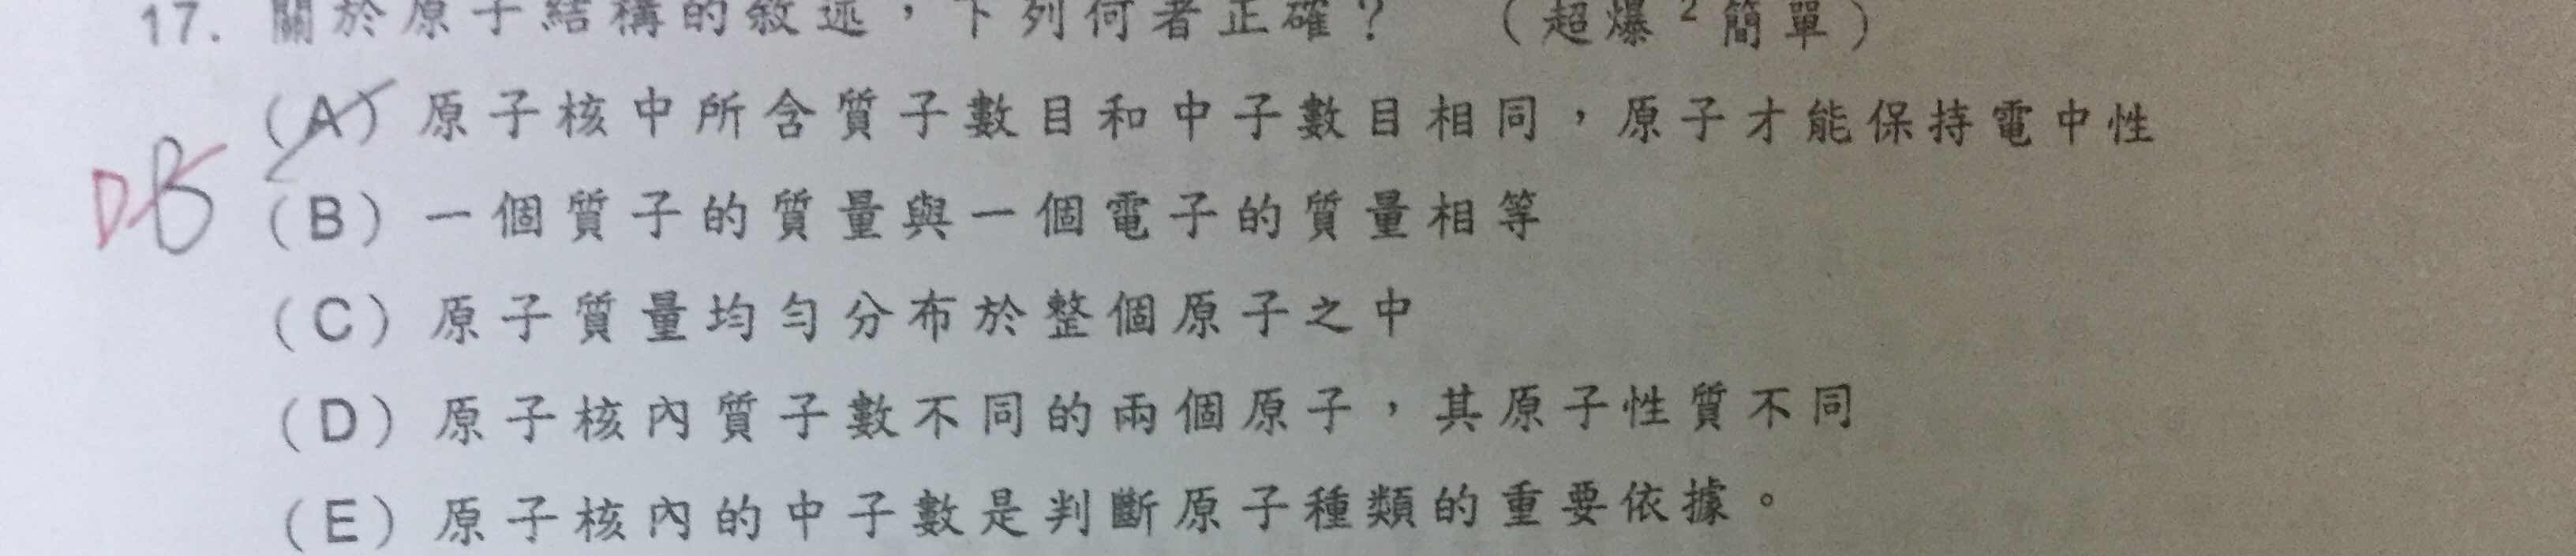 17. 關於原子結構的敘述，下列何者正確？ （超爆²簡單）
(A) 原子核中所含質子數目和中子數目相同，原子才能保持電中性
DB
(B) 一個質子的質量與一個電子的質量相等
(C) 原子質量均勻分布於整個原子之中
(D) 原子核內質子數不同的兩個原子，其原子性質不同
(E) 原子核內的中子數是判斷原子種類的重要依據。